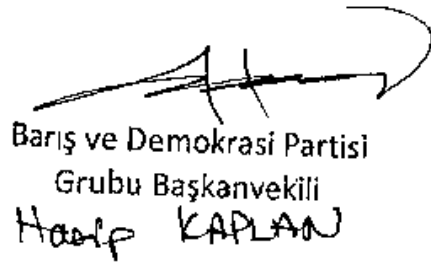 Barış ve Demokrasi Partisi
Grubu Başkanvekili
Hasip KAPLAN